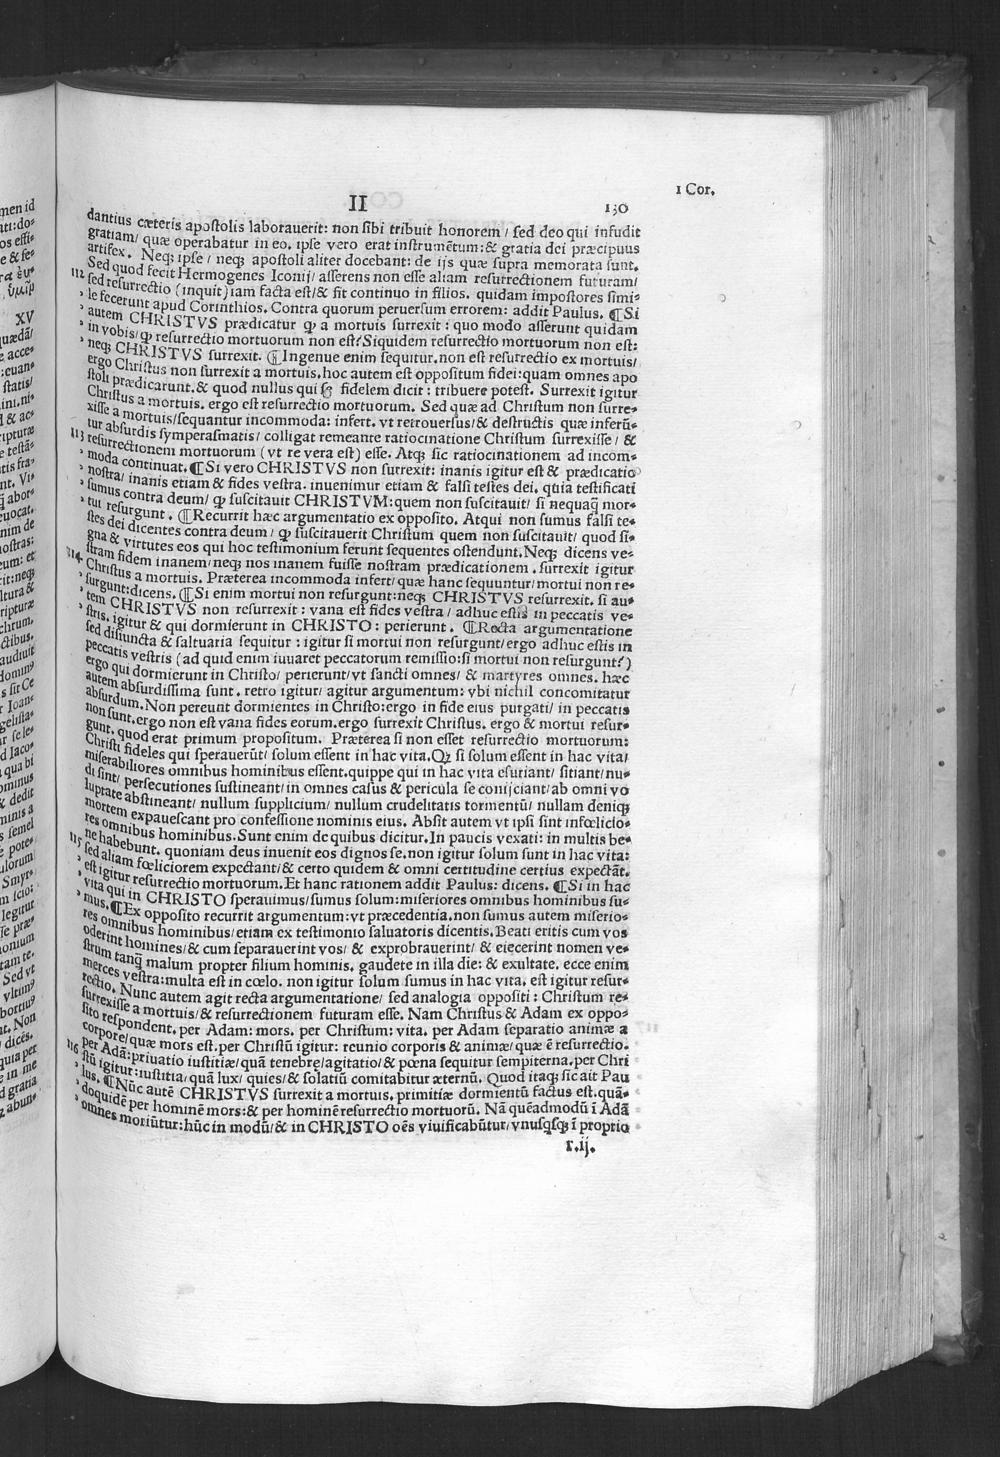 1 Cor.
II
130
dantius cæteris apostolis laborauerit: non sibi tribuit honorem / sed deo qui infudit
gratiam/ quæ operabatur in eo. ipse vero erat instrumētum:& gratia dei præcipuus
artifex. Neq; ipse / neq; apostoli aliter docebant: de ijs quæ supra memorata sunt.
112 Sed quod fecit Hermogenes Iconij/ asserens non esse aliam resurrectionem futuram/
sed resurrectio (inquit) iam facta est/& fit continuo in filios. quidam impostores simi-
le fecerunt apud Corinthios. Contra quorum peruersum errorem: addit Paulus. ¶ Si
autem CHRISTVS prædicatur ꝙ a mortuis surrexit : quo modo asserunt quidam
in vobis/ ꝙ resurrectio mortuorum non est? Siquidem resurrectio mortuorum non est:
neq; CHRISTVS surrexit. ¶ Ingenue enim sequitur. non est resurrectio ex mortuis/
ergo Christus non surrexit a mortuis. hoc autem est oppositum fidei: quam omnes apo
stoli prædicarunt. & quod nullus qui se fidelem dicit : tribuere potest. Surrexit igitur
Christus a mortuis. ergo est resurrectio mortuorum. Sed quæ ad Christum non surre-
xisse a mortuis/sequantur incommoda: infert. vt retrouersus/& destructis quæ inferū-
tur absurdis symperasmatis/ colligat remeante ratiocinatione Christum surrexisse / &
113 resurrectionem mortuorum (vt re vera est) esse. Atq; sic ratiocinationem ad incom-
moda continuat. ¶ Si vero CHRISTVS non surrexit: inanis igitur est & prædicatio
nostra/ inanis etiam & fides vestra. inuenimur etiam & falsi testes dei. quia testificati
sumus contra deum/ ꝙ suscitauit CHRISTVM: quem non suscitauit/ si nequaq̃ mor-
tui resurgunt. ¶ Recurrit hæc argumentatio ex opposito. Atqui non sumus falsi te-
stes dei dicentes contra deum / ꝙ suscitauerit Christum quem non suscitauit/ quod si-
gna & virtutes eos qui hoc testimonium ferunt sequentes ostendunt. Neq; dicens ve-
stram fidem inanem/ neq; nos inanem fuisse nostram prædicationem. surrexit igitur
114 Christus a mortuis. Præterea incommoda infert/ quæ hanc sequuntur/ mortui non re-
surgunt: dicens. ¶ Si enim mortui non resurgunt: neq; CHRISTVS resurrexit. si au-
tem CHRISTVS non resurrexit : vana est fides vestra / adhuc estis in peccatis ve-
stris. igitur & qui dormierunt in CHRISTO: perierunt. ¶ Recta argumentatione
sed disiuncta & saltuaria sequitur : igitur si mortui non resurgunt/ ergo adhuc estis in
peccatis vestris (ad quid enim iuuaret peccatorum remissio: si mortui non resurgunt?)
ergo qui dormierunt in Christo/ perierunt/ vt sancti omnes/ & martyres omnes. hæc
autem absurdissima sunt. retro igitur/ agitur argumentum: vbi nichil concomitatur
absurdum. Non pereunt dormientes in Christo: ergo in fide eius purgati/ in peccatis
non sunt. ergo non est vana fides eorum. ergo surrexit Christus. ergo & mortui resur-
gunt. quod erat primum propositum. Præterea si non esset resurrectio mortuorum:
Christi fideles qui sperauerūt/ solum essent in hac vita. Qz si solum essent in hac vita/
miserabiliores omnibus hominibus essent. quippe qui in hac vita esuriant/ sitiant/ nu-
di sint/ persecutiones sustineant/ in omnes casus & pericula se conijciant/ ab omni vo
luptate abstineant/ nullum supplicium/ nullum crudelitatis tormentū/ nullam deniq;
mortem expauescant pro confessione nominis eius. Absit autem vt ipsi sint infœlicio-
res omnibus hominibus. Sunt enim de quibus dicitur. In paucis vexati: in multis be-
ne habebunt. quoniam deus inuenit eos dignos se. non igitur solum sunt in hac vita:
115 sed aliam fœliciorem expectant/ & certo quidem & omni certitudine certius expectāt.
est igitur resurrectio mortuorum. Et hanc rationem addit Paulus: dicens. ¶ Si in hac
vita qui in CHRISTO sperauimus/ sumus solum: miseriores omnibus hominibus su-
mus. ¶ Ex opposito recurrit argumentum: vt præcedentia. non sumus autem miserio-
res omnibus hominibus/ etiam ex testimonio saluatoris dicentis. Beati eritis cum vos
oderint homines/ & cum separauerint vos/ & exprobrauerint/ & eiecerint nomen ve-
strum tanq̃ malum propter filium hominis. gaudete in illa die: & exultate. ecce enim
merces vestra: multa est in cœlo. non igitur solum sumus in hac vita. est igitur resur-
rectio. Nunc autem agit recta argumentatione/ sed analogia oppositi : Christum re-
surrexisse a mortuis/ & resurrectionem futuram esse. Nam Christus & Adam ex oppo-
sito respondent. per Adam: mors. per Christum: vita. per Adam separatio animæ a
corpore/ quæ mors est. per Christū igitur: reunio corporis & animæ/ quæ ē resurrectio.
116 per Adā: priuatio iustitiæ/ quā tenebre/ agitatio/ & pœna sequitur sempiterna. per Chri
stū igitur: iustitia/ quā lux/ quies/ & solatiū comitabitur æternū. Quod itaq; sic ait Pau
lus. ¶ Nūc autē CHRISTVS surrexit a mortuis. primitiæ dormientū factus est. quā-
doquidē per hominē mors: & per hominē resurrectio mortuorū. Nā quēadmodū ī Adā
omnes moriūtur: hūc in modū/ & in CHRISTO oēs viuificabūtur/ vnusq̃sq; ī proprio
r.ij.